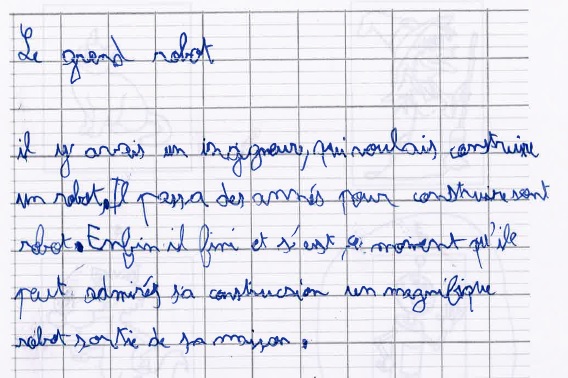 Le grand robot
il y avais un ingigneur, qui voulais construire
un robot. Il passa des annés pour construire sont
robot. Enfin il fini et s'est ce moment qu'ile
peut admirés sa construcsion un magnifique
robot sortie de sa maison.